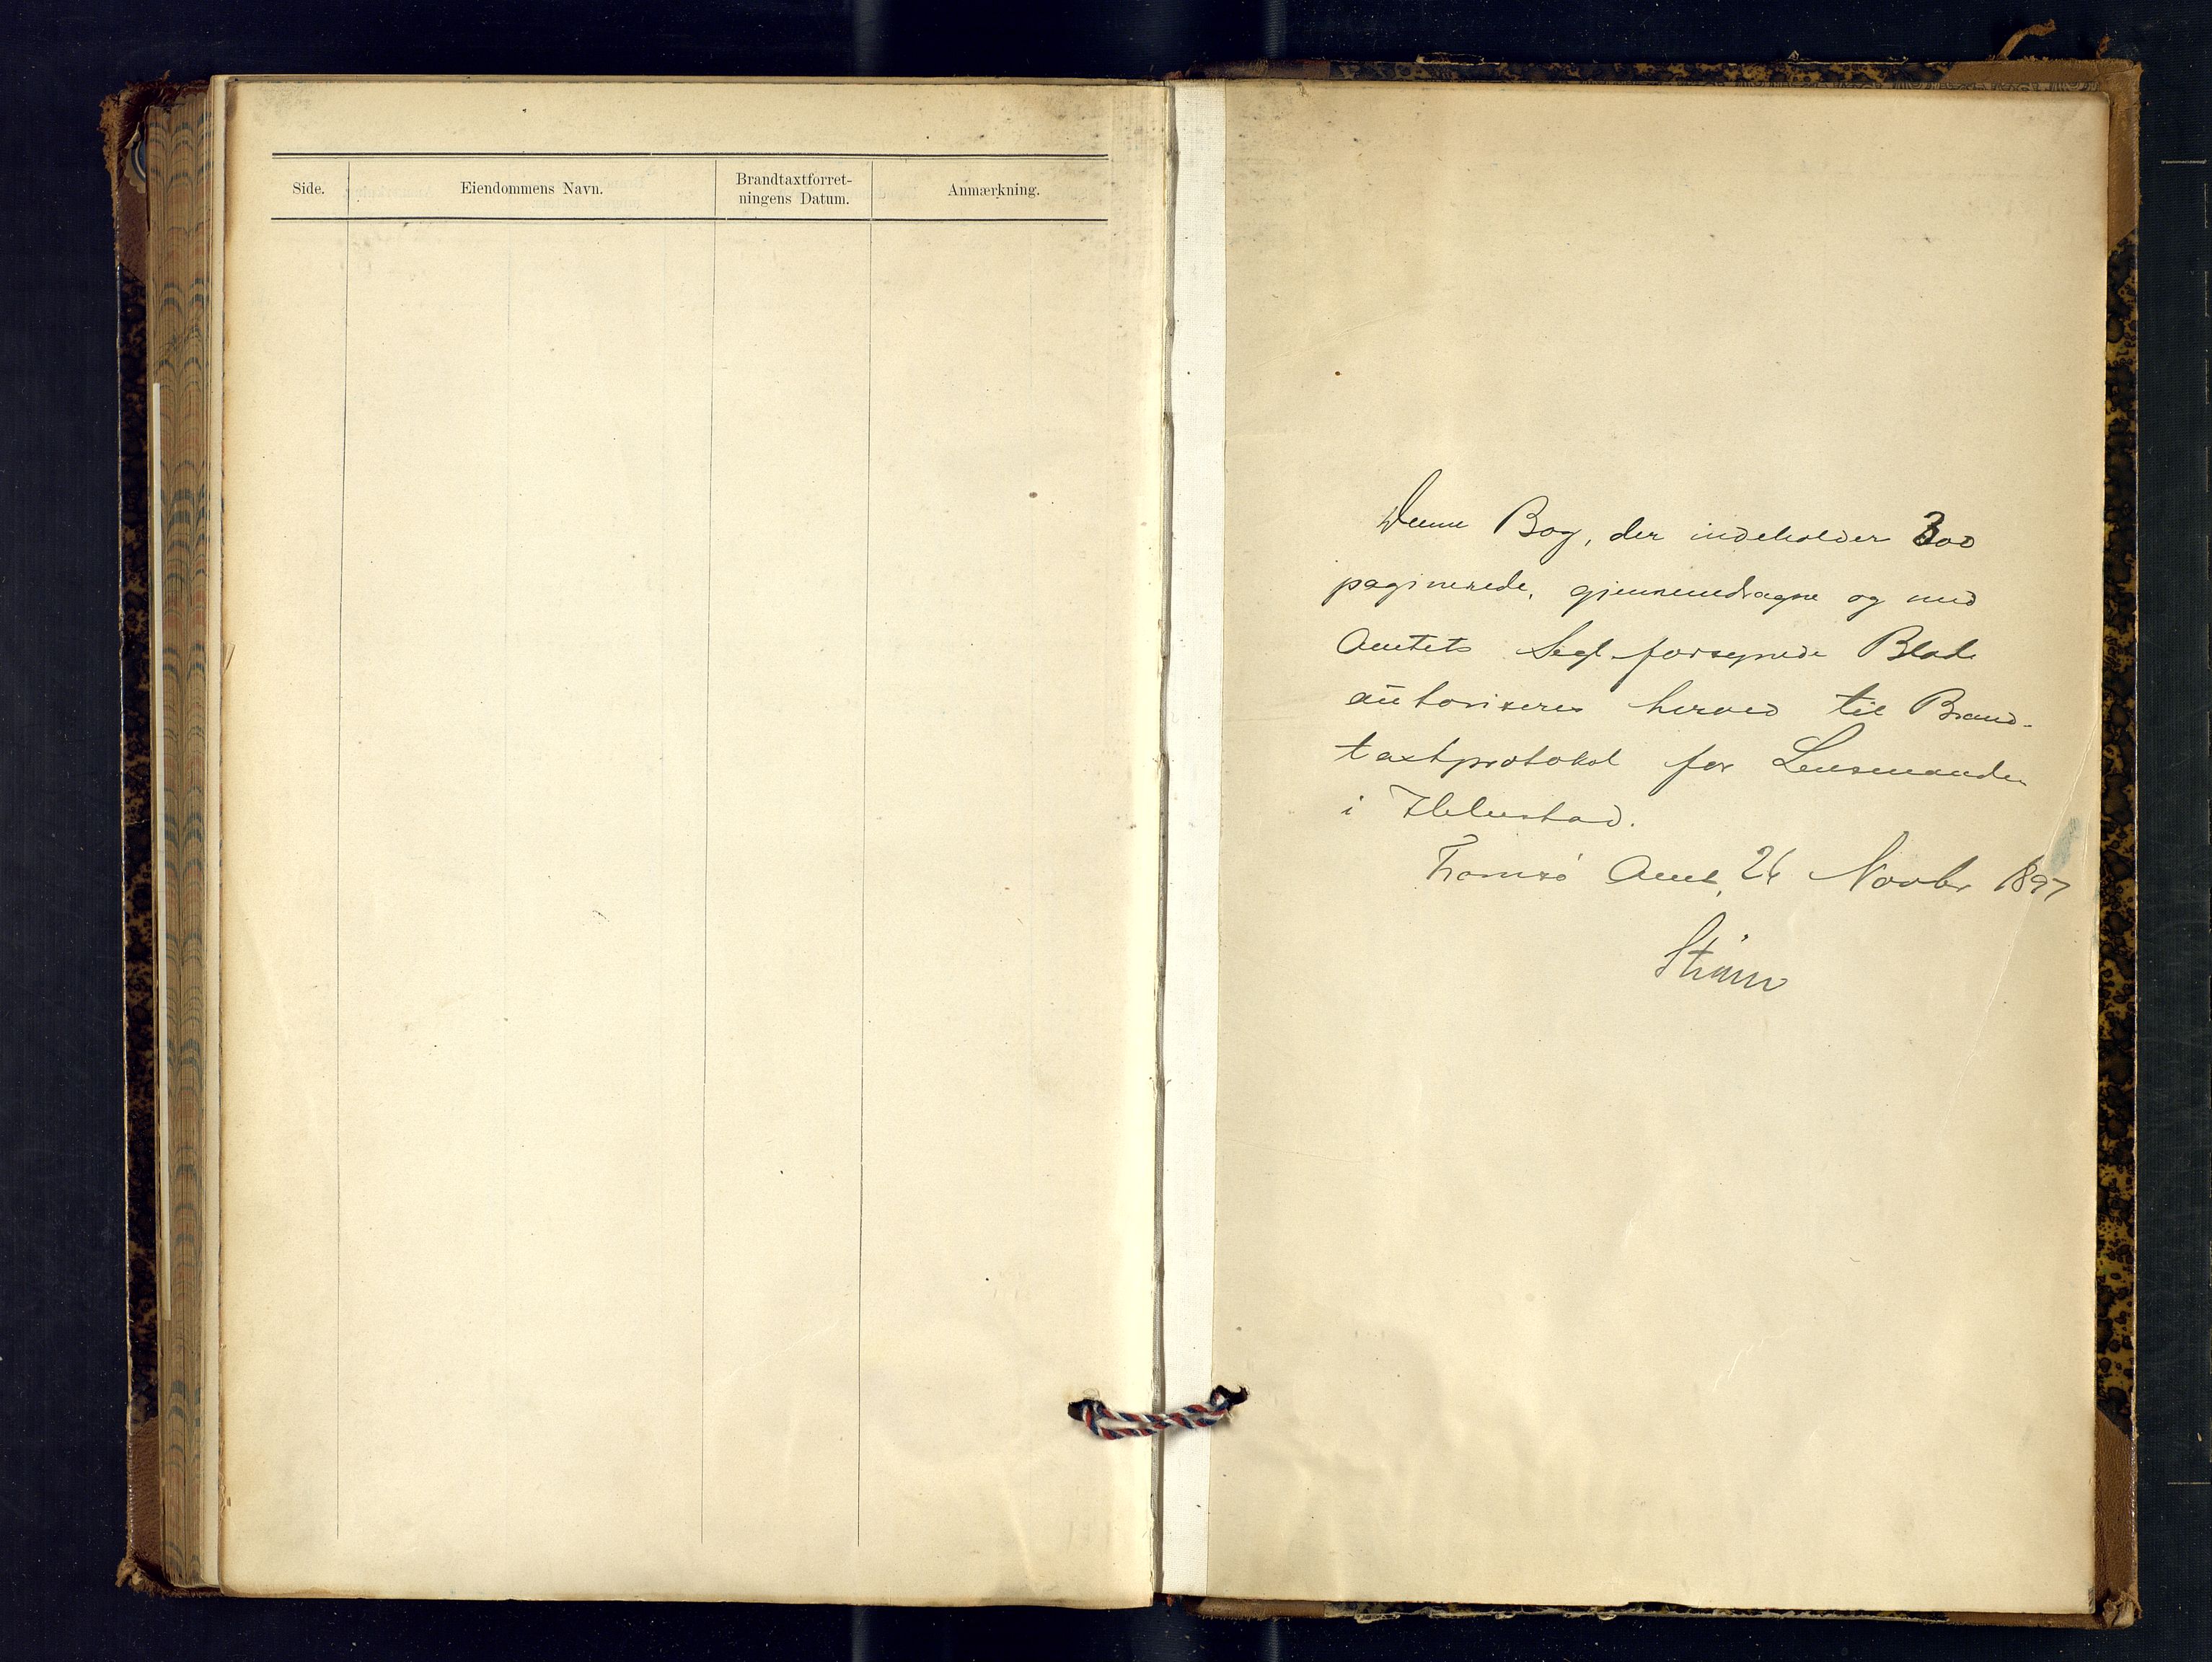 Side.
Eiendommens Navn.
Brandtaxtforret-
ningens Datum.
Anmærkning.
Denne Bog, der indeholder 300
paginerede, gjennemdragne og med
Amtets Segl forsynede Blade
autoriseres herved til Brand-
taxtprotokol for Lensmanden
i
Tromsø Amt, 26 Novbr 1897